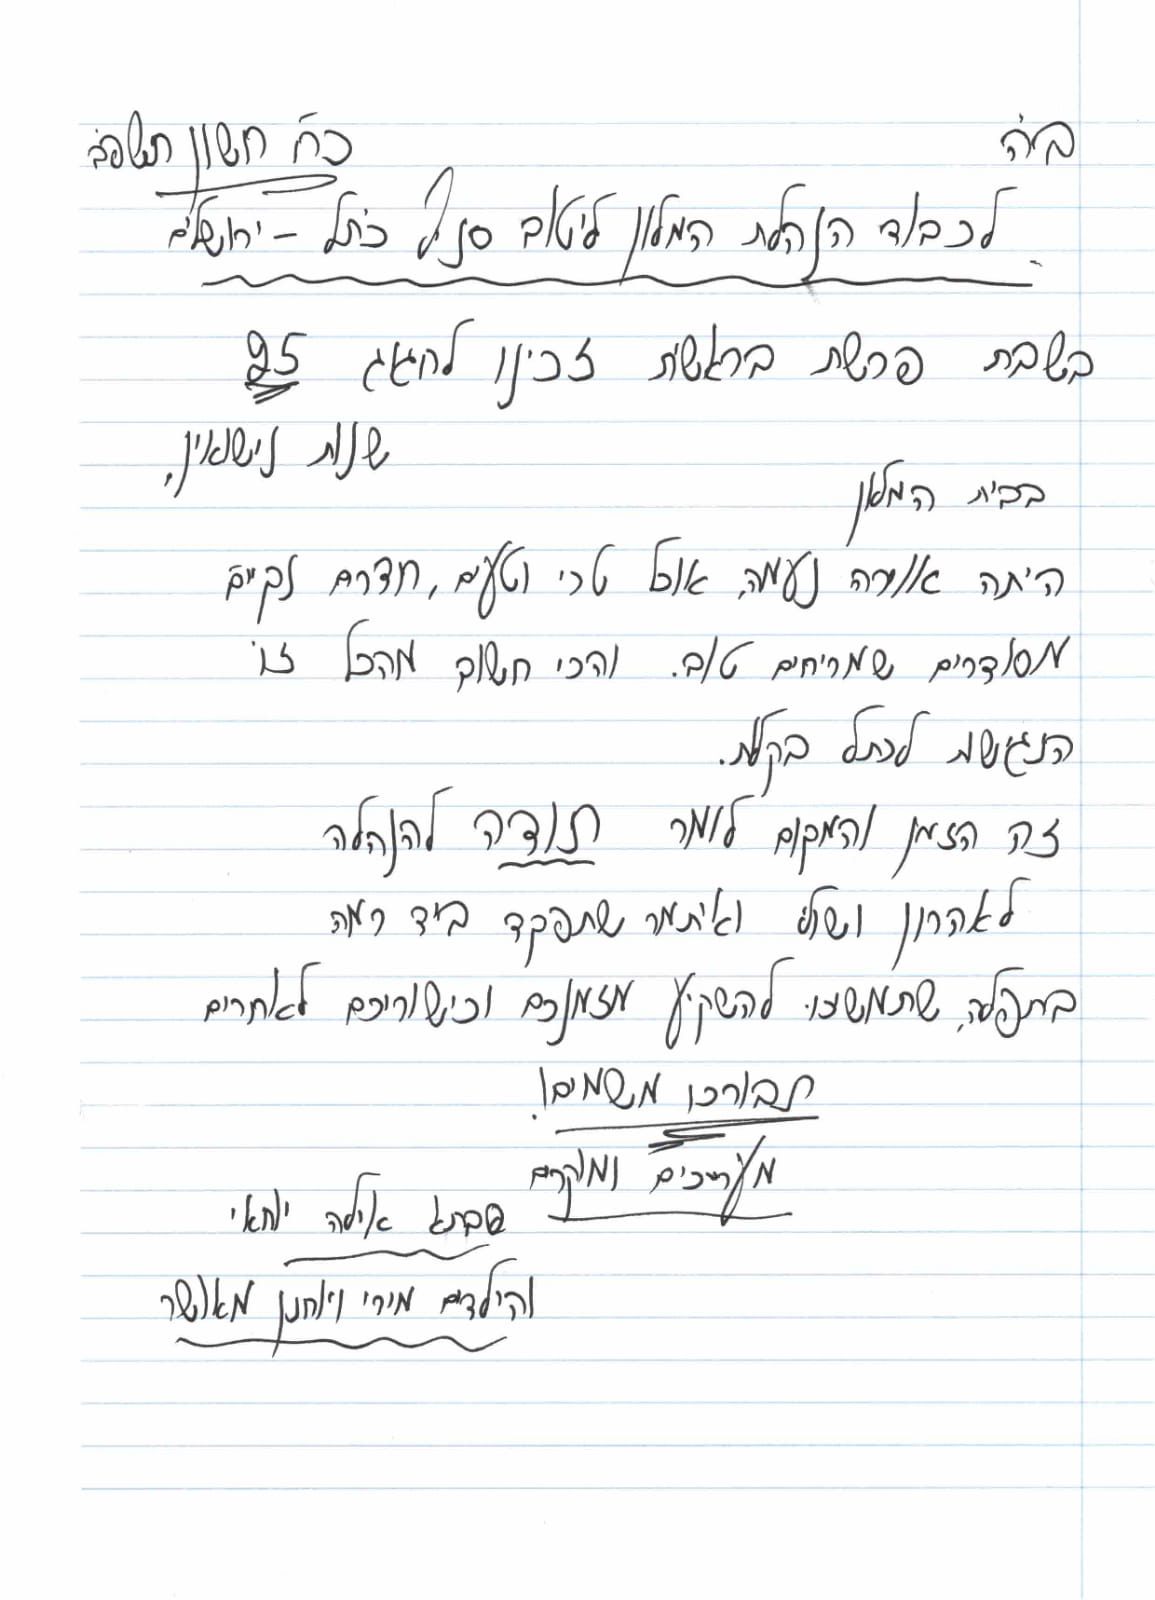 ב"ה
כ"ח חשון תשפ"ב
לכבוד הנהלת המלון ליטוב סניף כותל - ירושלים
בשבת פרשת בראשית זכינו לחגוג 25
שנות נישואין,
בבית המלון
היתה אווירה נעימה, אוכל טרי וטעים, חדרים נקיים
מסודרים שמריחים טוב. והכי חשוב מהכל זו
הנגישות לכותל בקלות.
זה הזמן והמקום לומר תודה להנהלה
לאהרון ושולי ואיתמר שתפקד ביד רמה
בתפילה, שתמשיכו להשקיע מזמנכם וכישוריכם לאחרים
תבורכו משמים!
מעריכים ומוקירים
שבתג אילה יוחאי
והילדים מירי ויוחנן מאושר